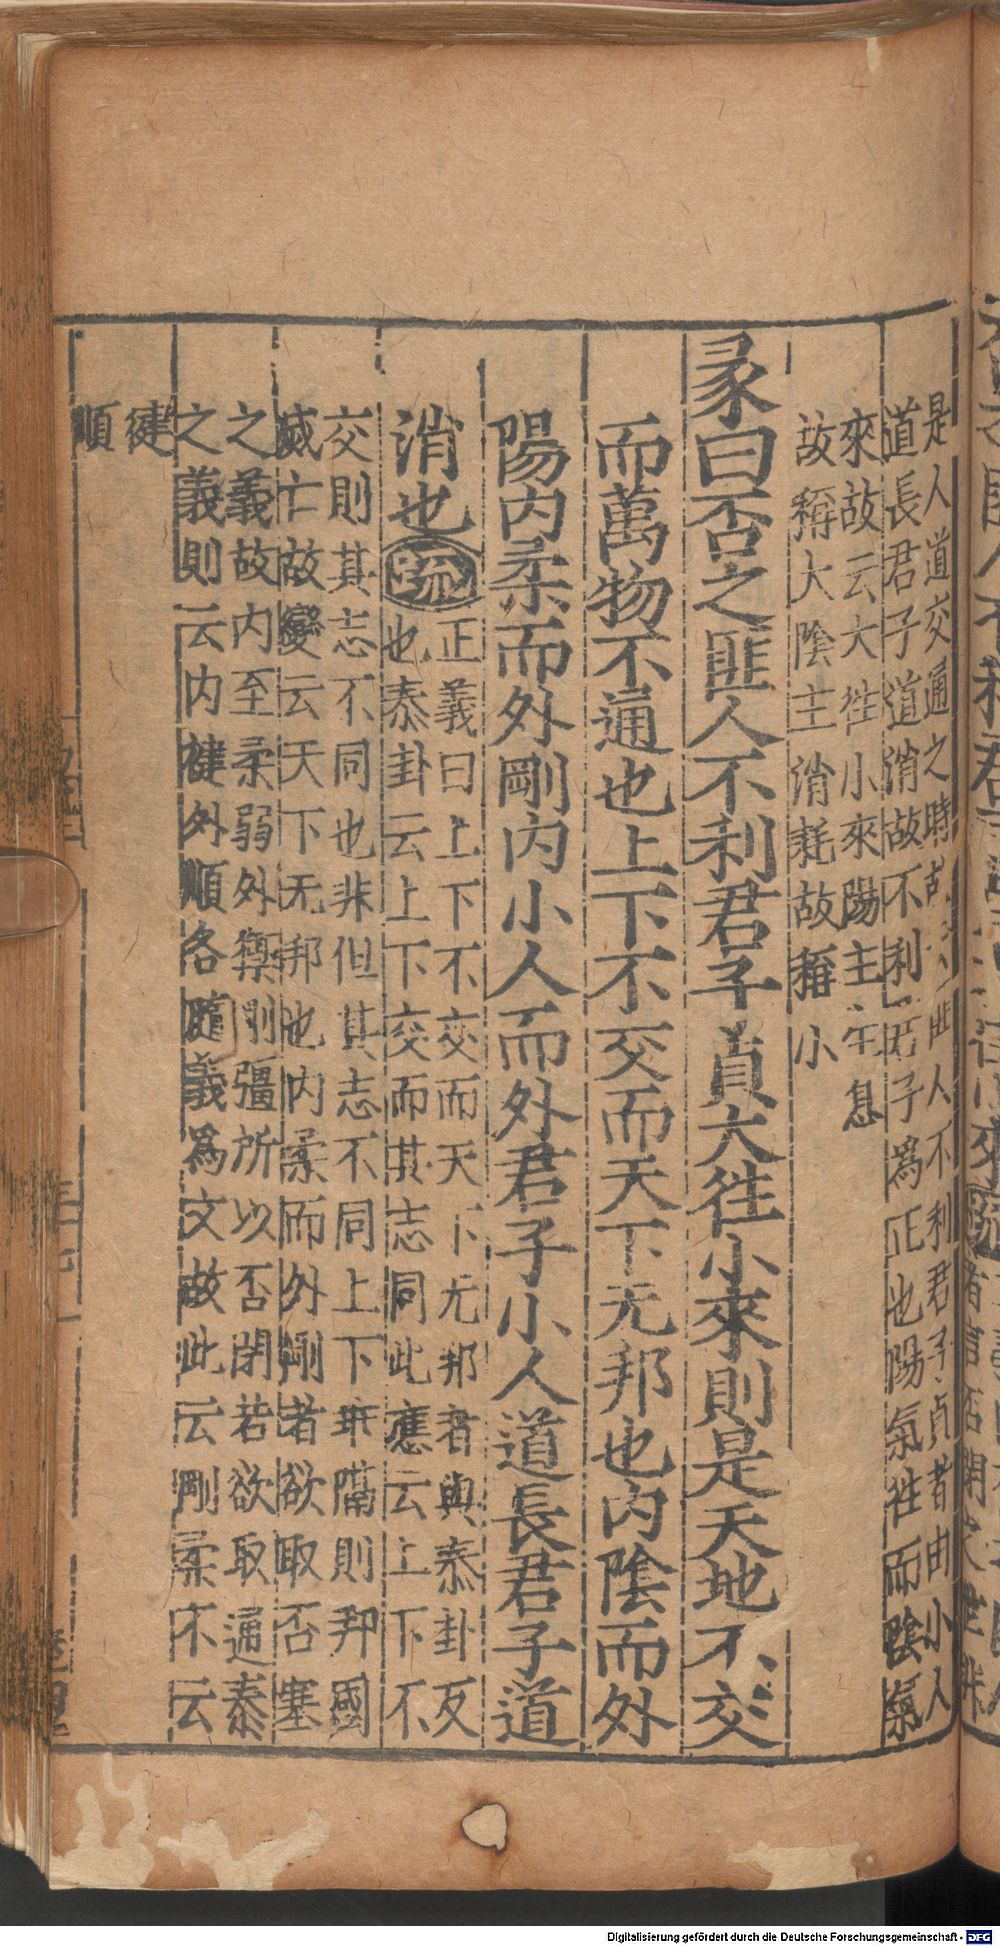 是人道交通之時故云匪人不利君子貞者由小人
道長君子道消故不利君子爲正也陽氣徃而陰氣
來故云大徃小來陽主生息
故稱大陰主消耗故稱小
彖曰否之匪人不利君子貞大徃小來則是天地不交
而萬物不通也上下不交而天下无邦也內陰而外
陽内柔而外剛内小人而外君子小人道長君子道
消也疏正義曰上下不交而天下无邦者與泰卦反
也泰卦云上下交而其志同此應云上下不
交則其志不同也非但其志不同上下乖隔則邦國
滅亡故變云天下无邦也内柔而外剛者欲取否塞
之義故内至柔弱外禦剛彊所以否閉若欲取通泰
之義則云内健外順各隨義爲文故此云剛柔不云
健
順
Digitalisierung gefördert durch die Deutsche Forschungsgemeinschaft - DFG